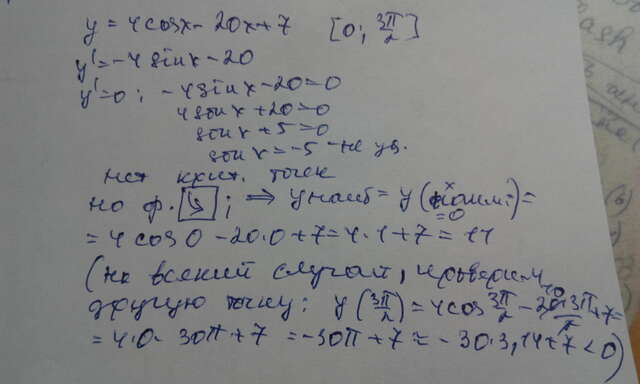 y = 4cosx - 20x + 7 [0; 3π/2]
y' = -4sinx - 20
y' = 0; -4sinx - 20 = 0
4sinx + 20 = 0
sinx + 5 = 0
sinx = -5 - не уд.
нет крит. точек
но ф. ↘; ⇒ y наиб = y(x наим. = 0) =
= 4cos0 - 20·0 + 7 = 4·1 + 7 = 11
(на всякий случай, проверим
другую точку: y(3π/2) = 4cos 3π/2 - 20·3π/2 + 7 =
= 4·0 - 30π + 7 = -30π + 7 ≈ -30·3,14 + 7 < 0)